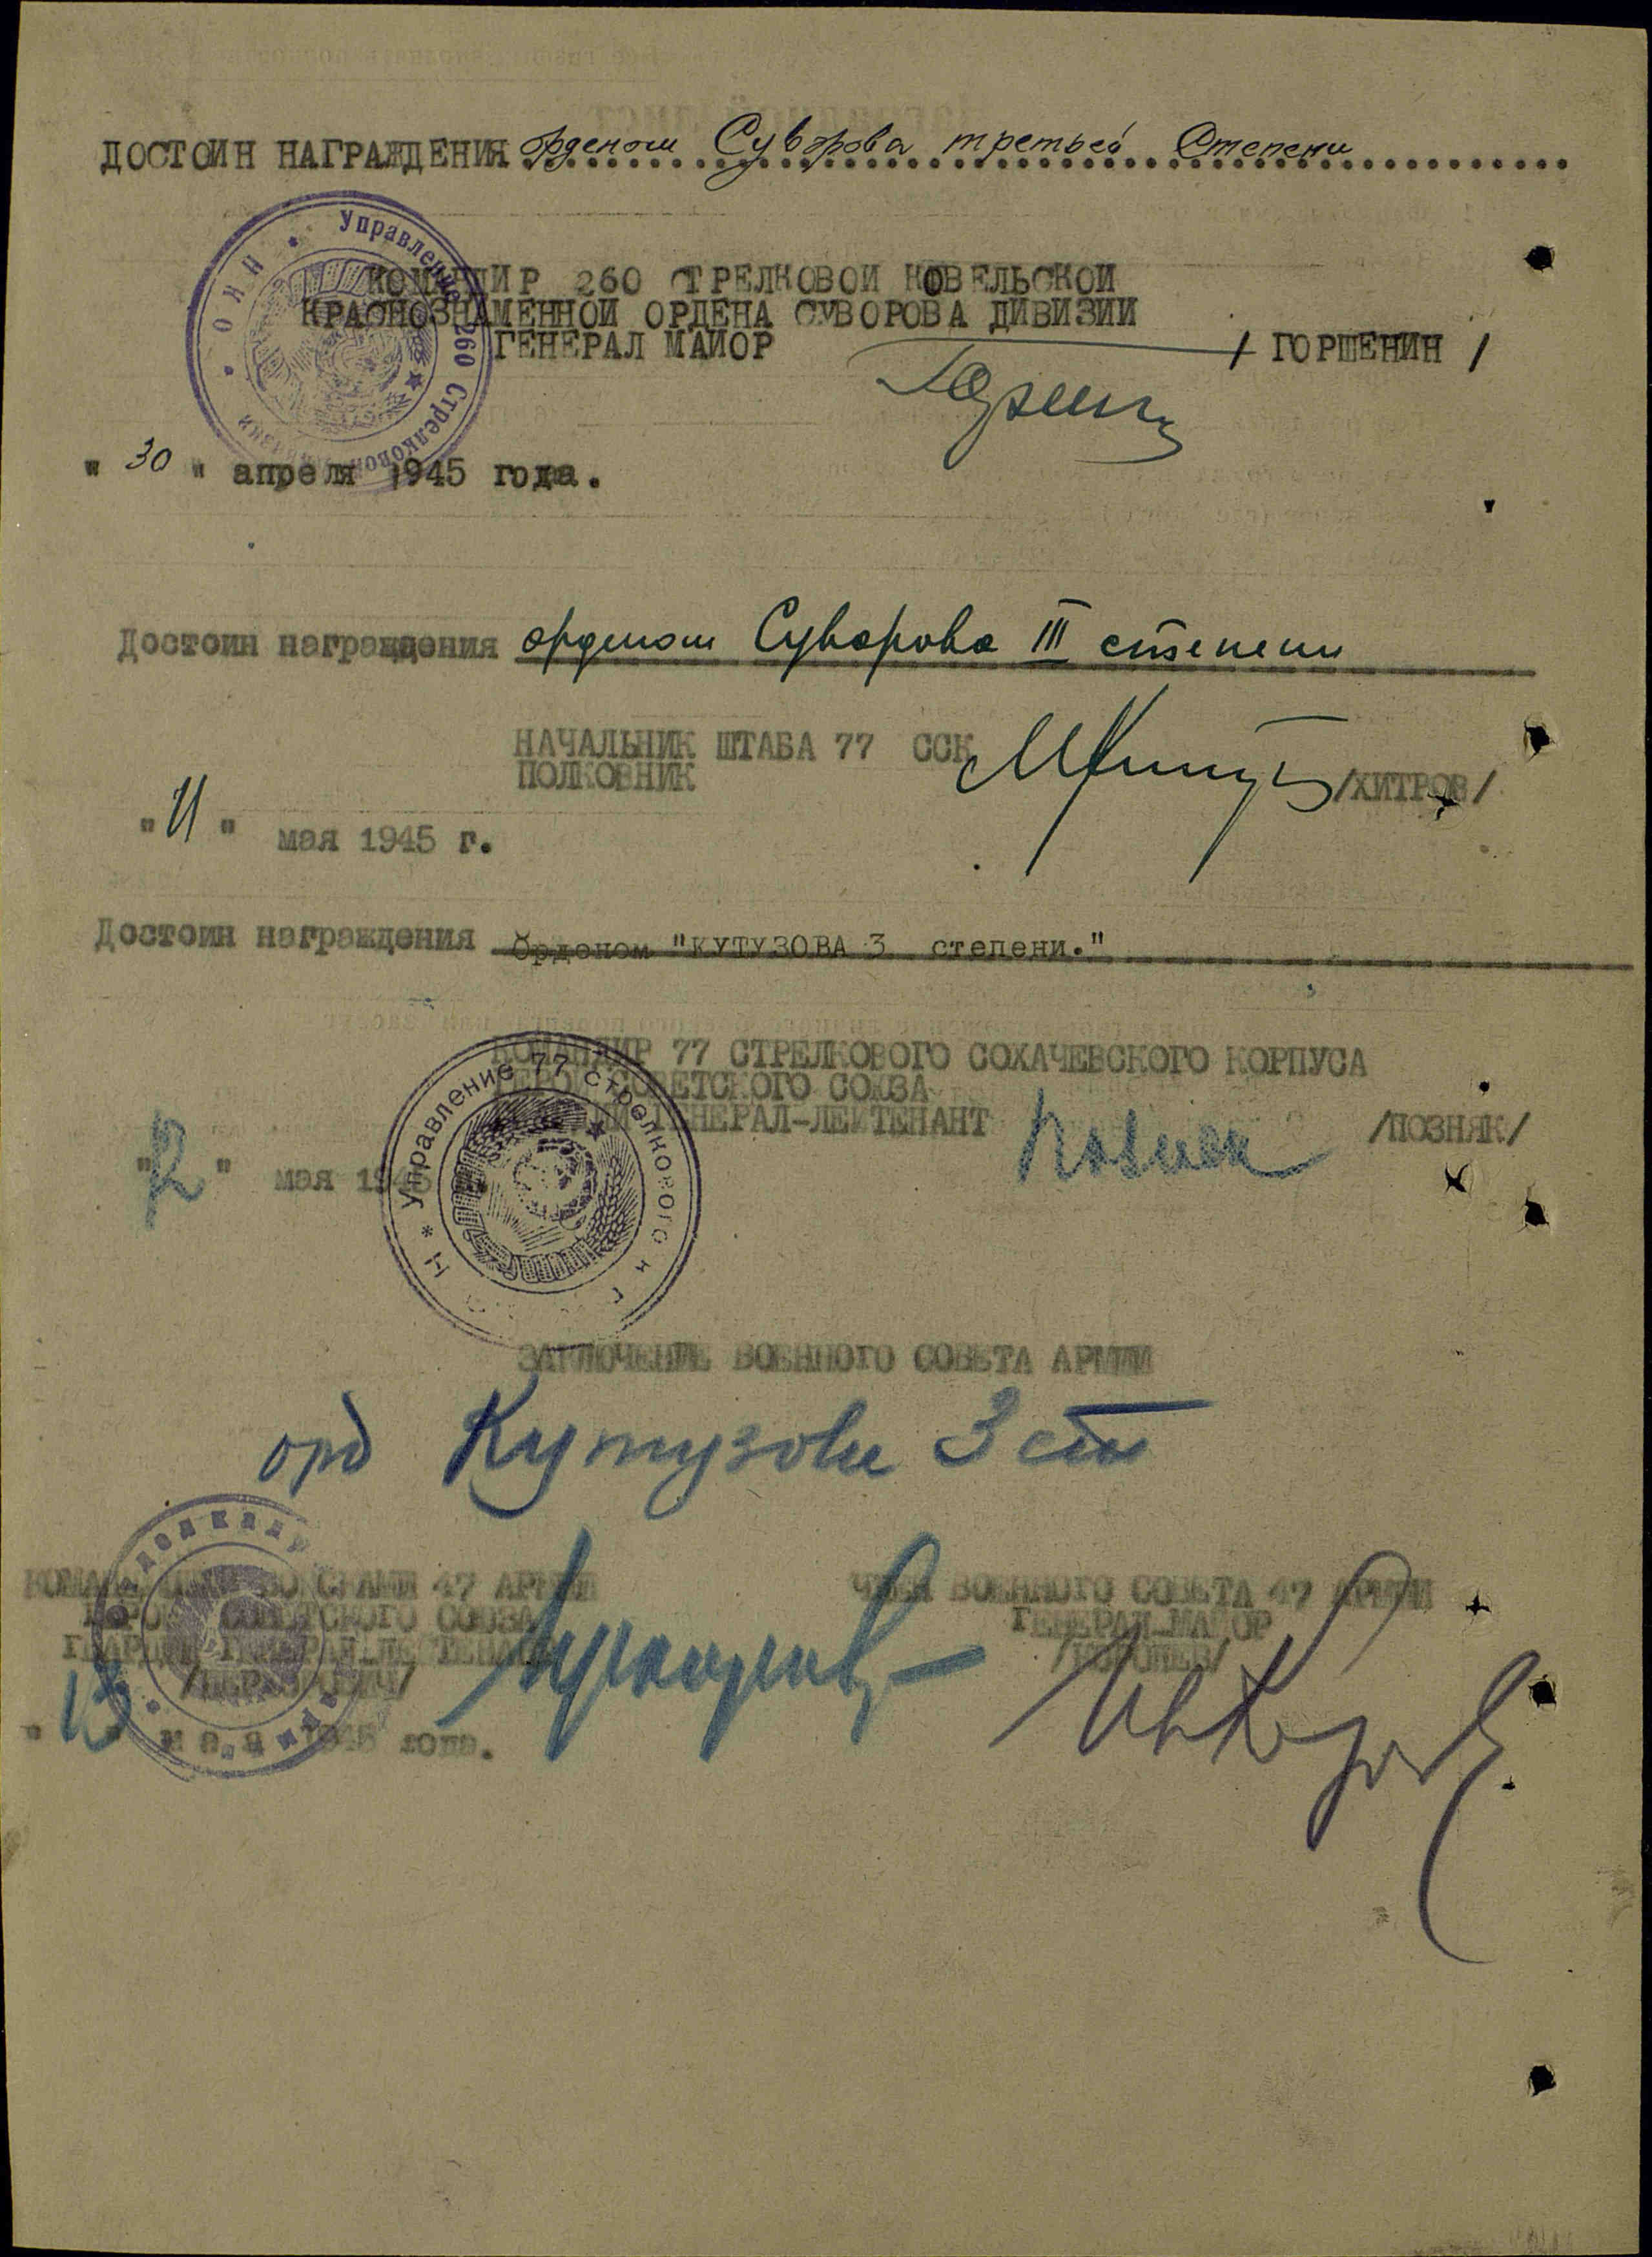 ДОСТОИН НАГРАЖДЕНИЯ орденом Суворова третьей Степени
Управление 260 Стрелковой дивизии * НКО *
КОМАНДИР 260 СТРЕЛКОВОЙ КОВЕЛЬСКОЙ
КРАСНОЗНАМЕННОЙ ОРДЕНА СУВОРОВА ДИВИЗИИ
ГЕНЕРАЛ МАЙОР / ГОРШЕНИН /
" 30 " апреля 1945 года.
Достоин награждения орденом Суворова III степени
НАЧАЛЬНИК ШТАБА 77 ССК
ПОЛКОВНИК /ХИТРОВ/
"11" мая 1945 г.
Достоин награждения Орденом "КУТУЗОВА 3 степени."
Управление 77 стрелкового
КОМАНДИР 77 СТРЕЛКОВОГО СОХАЧЕВСКОГО КОРПУСА
ГЕРОЙ СОВЕТСКОГО СОЮЗА
ГЕНЕРАЛ-ЛЕЙТЕНАНТ Позняк /ПОЗНЯК/
"12" мая 1945
ЗАКЛЮЧЕНИЕ ВОЕННОГО СОВЕТА АРМИИ
орд Кутузова 3 ст
КОМАНДУЮЩИЙ ВОЙСКАМИ 47 АРМИИ
ГЕРОЙ СОВЕТСКОГО СОЮЗА
ГВАРДИИ ГЕНЕРАЛ-ЛЕЙТЕНАНТ
/ПЕРХОРОВИЧ/
ЧЛЕН ВОЕННОГО СОВЕТА 47 АРМИИ
ГЕНЕРАЛ-МАЙОР
/КОРОЛЕВ/
мая 1945 года.